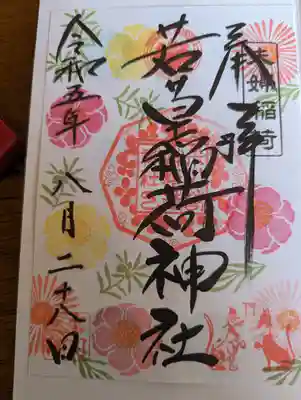 奉拝
稲荷
若宮稲荷神社
令和五年
八月二十八日